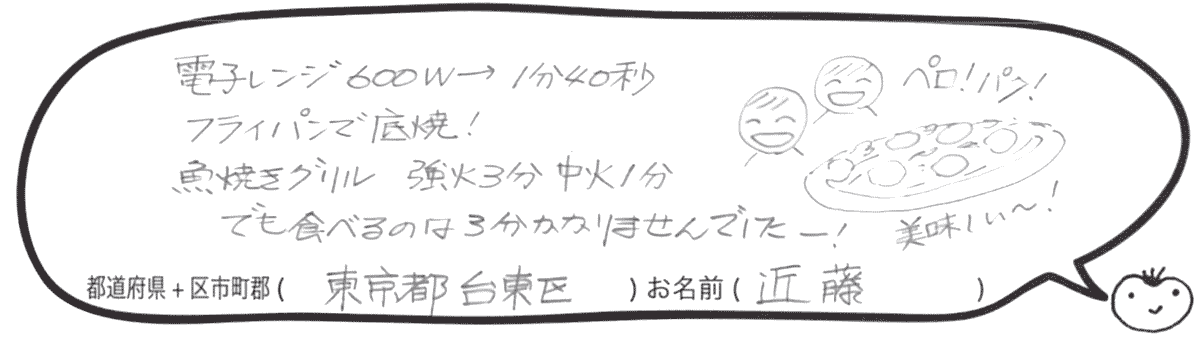 電子レンジ600W→1分40秒
フライパンで底焼!
魚焼きグリル 強火3分 中火1分
でも食べるのは3分かかりませんでしたー!
ペロ!パク!
美味しい~!
都道府県+区市町郡( 東京都台東区 )お名前( 近藤 )